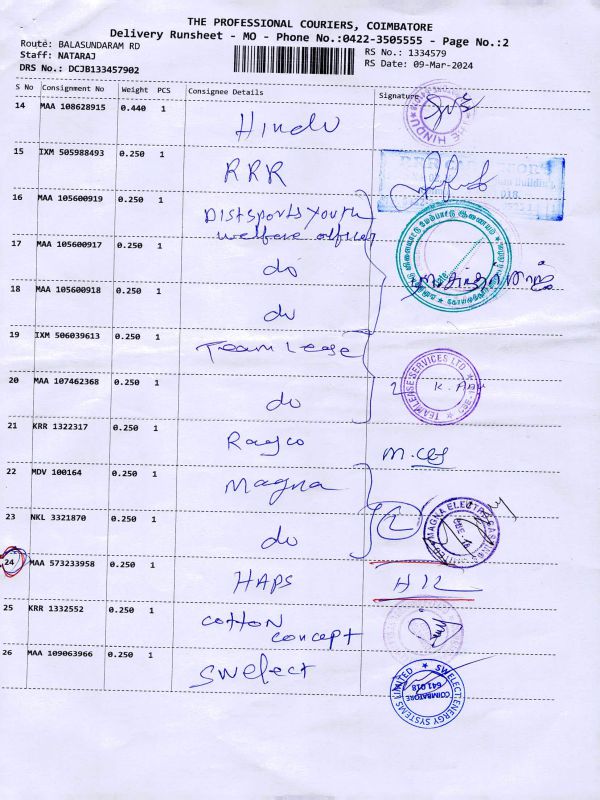 THE PROFESSIONAL COURIERS, COIMBATORE
Delivery Runsheet - MO - Phone No.:0422-3505555 - Page No.:2
Route: BALASUNDARAM RD RS No.: 1334579
Staff: NATARAJ RS Date: 09-Mar-2024
DRS No.: DCJB133457902
S No Consignment No Weight PCS Consignee Details Signature
14 MAA 108628915 0.440 1 Hindu THE HINDU
15 IXM 505988493 0.250 1 RRR
16 MAA 105600919 0.250 1 Distsports youth
welfare officer
17 MAA 105600917 0.250 1 do
18 MAA 105600918 0.250 1 do
19 IXM 506039613 0.250 1 Team Lease
20 MAA 107462368 0.250 1 do 2 TEAMLEASE SERVICES LTD
21 KRR 1322317 0.250 1 Ragco
22 MDV 100164 0.250 1 Magna
23 NKL 3321870 0.250 1 do 2 MAGNA ELECTRO CASTINGS
24 MAA 573233958 0.250 1 HAPS H12
25 KRR 1332552 0.250 1 cotton
concept
26 MAA 109063966 0.250 1 swelect
SWELECT ENERGY SYSTEMS LIMITED
COIMBATORE
641 018